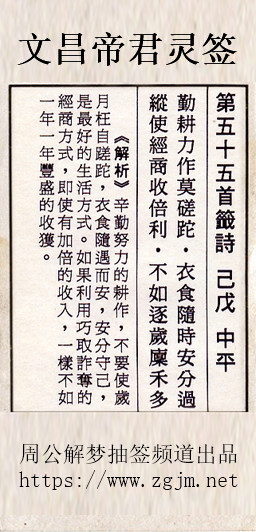 文昌帝君灵签
第五十五首籤詩 己戊 中平
勤耕力作莫磋跎．衣食隨時安分過
縱使經商收倍利．不如逐歲廩禾多
《解析》辛勤努力的耕作，不要使歲
月枉自蹉跎，衣食隨遇而安，安分守己，
是最好的生活方式。如果利用巧取詐奪的
經商方式，即使有加倍的收入，一樣不如
一年一年豐盛的收獲。
周公解梦抽签频道出品
https://www.zgjm.net